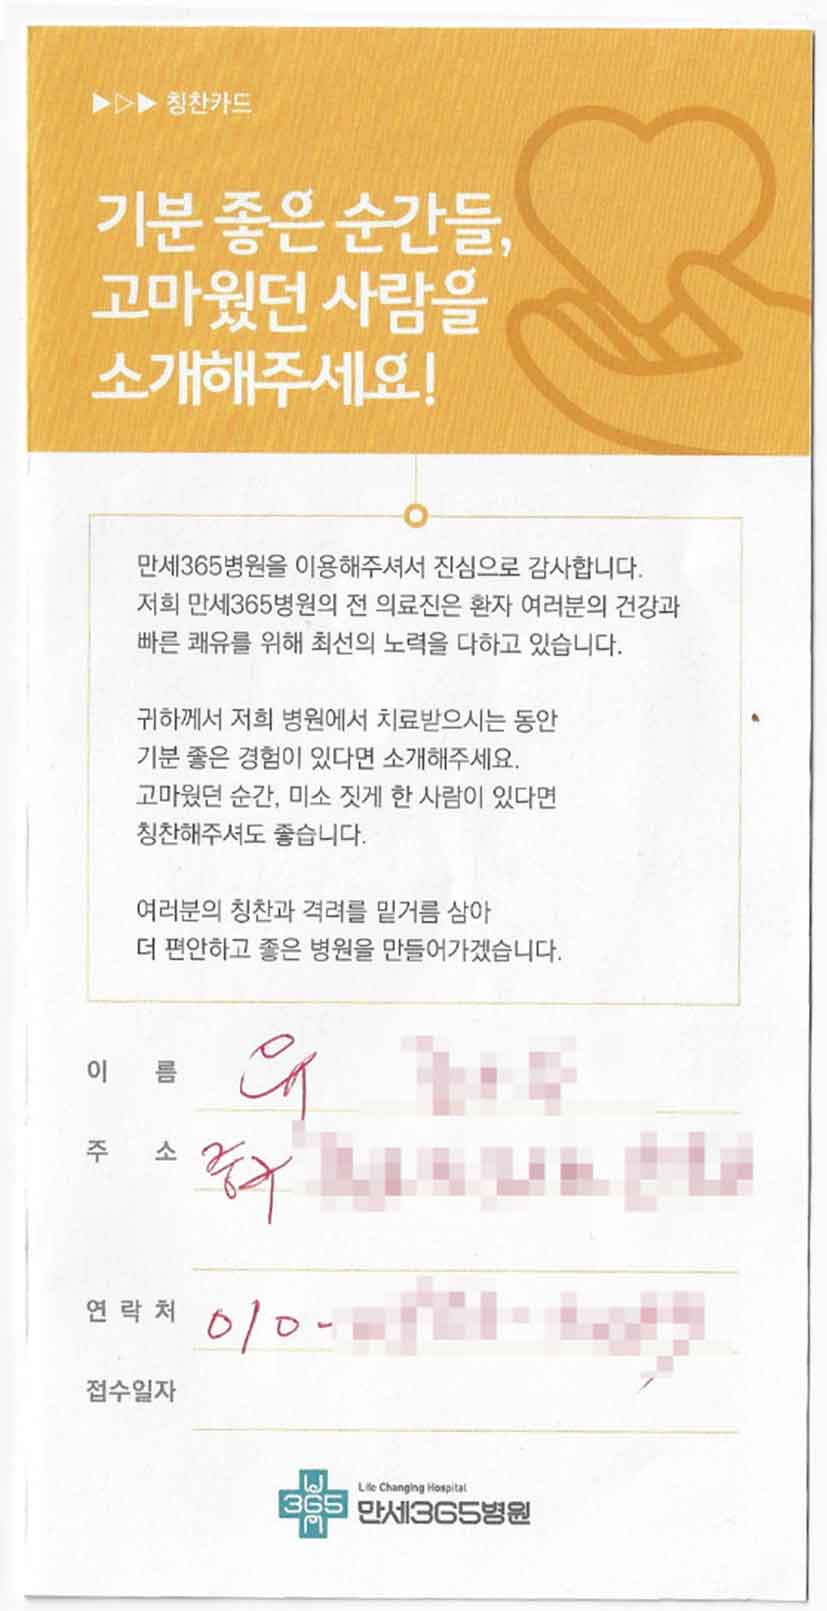 ▶▷▶ 칭찬카드
기분 좋은 순간들,
고마웠던 사람을
소개해주세요!
만세365병원을 이용해주셔서 진심으로 감사합니다.
저희 만세365병원의 전 의료진은 환자 여러분의 건강과
빠른 쾌유를 위해 최선의 노력을 다하고 있습니다.
귀하께서 저희 병원에서 치료받으시는 동안
기분 좋은 경험이 있다면 소개해주세요.
고마웠던 순간, 미소 짓게 한 사람이 있다면
칭찬해주셔도 좋습니다.
여러분의 칭찬과 격려를 밑거름 삼아
더 편안하고 좋은 병원을 만들어가겠습니다.
이 름
주 소 중구
연 락 처 010-
접수일자
365
Life Changing Hospital
만세365병원